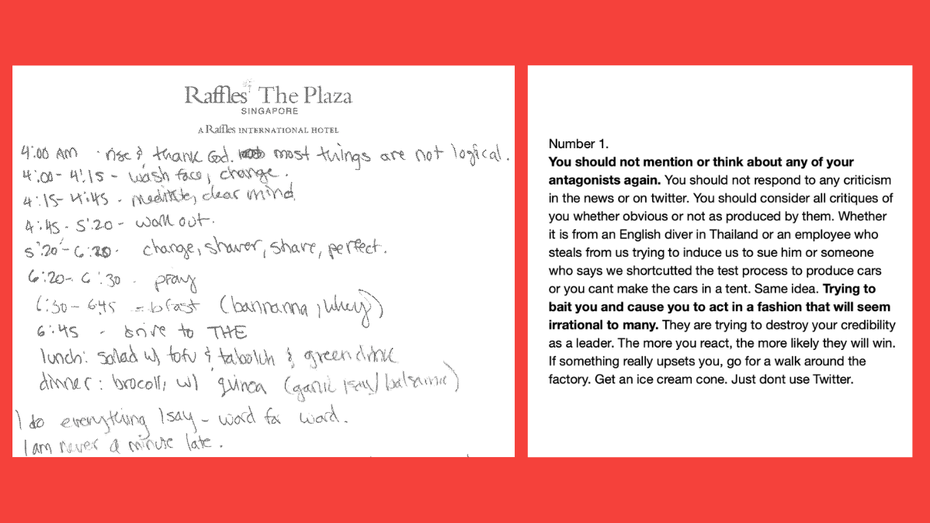 Raffles The Plaza
SINGAPORE
A Raffles INTERNATIONAL HOTEL
4:00 AM · rise & thank God. most things are not logical.
4:00 - 4:15 - wash face, change.
4:15 - 4:45 - meditate, clear mind.
4:45 - 5:20 - work out.
5:20 - 6:20 - change, shower, shave, perfect.
6:20 - 6:30 - pray
6:30 - 6:45 - bfast (bannanna, whey)
6:45 - drive to THE
lunch: salad w/ tofu & & green drinc
dinner: w/ quinoa (garlic /balsamic)
I do everything I say - word for word.
I am never a minute late.
Number 1.
You should not mention or think about any of your
antagonists again. You should not respond to any criticism
in the news or on twitter. You should consider all critiques of
you whether obvious or not as produced by them. Whether
it is from an English diver in Thailand or an employee who
steals from us trying to induce us to sue him or someone
who says we shortcutted the test process to produce cars
or you cant make the cars in a tent. Same idea. Trying to
bait you and cause you to act in a fashion that will seem
irrational to many. They are trying to destroy your credibility
as a leader. The more you react, the more likely they will win.
If something really upsets you, go for a walk around the
factory. Get an ice cream cone. Just dont use Twitter.